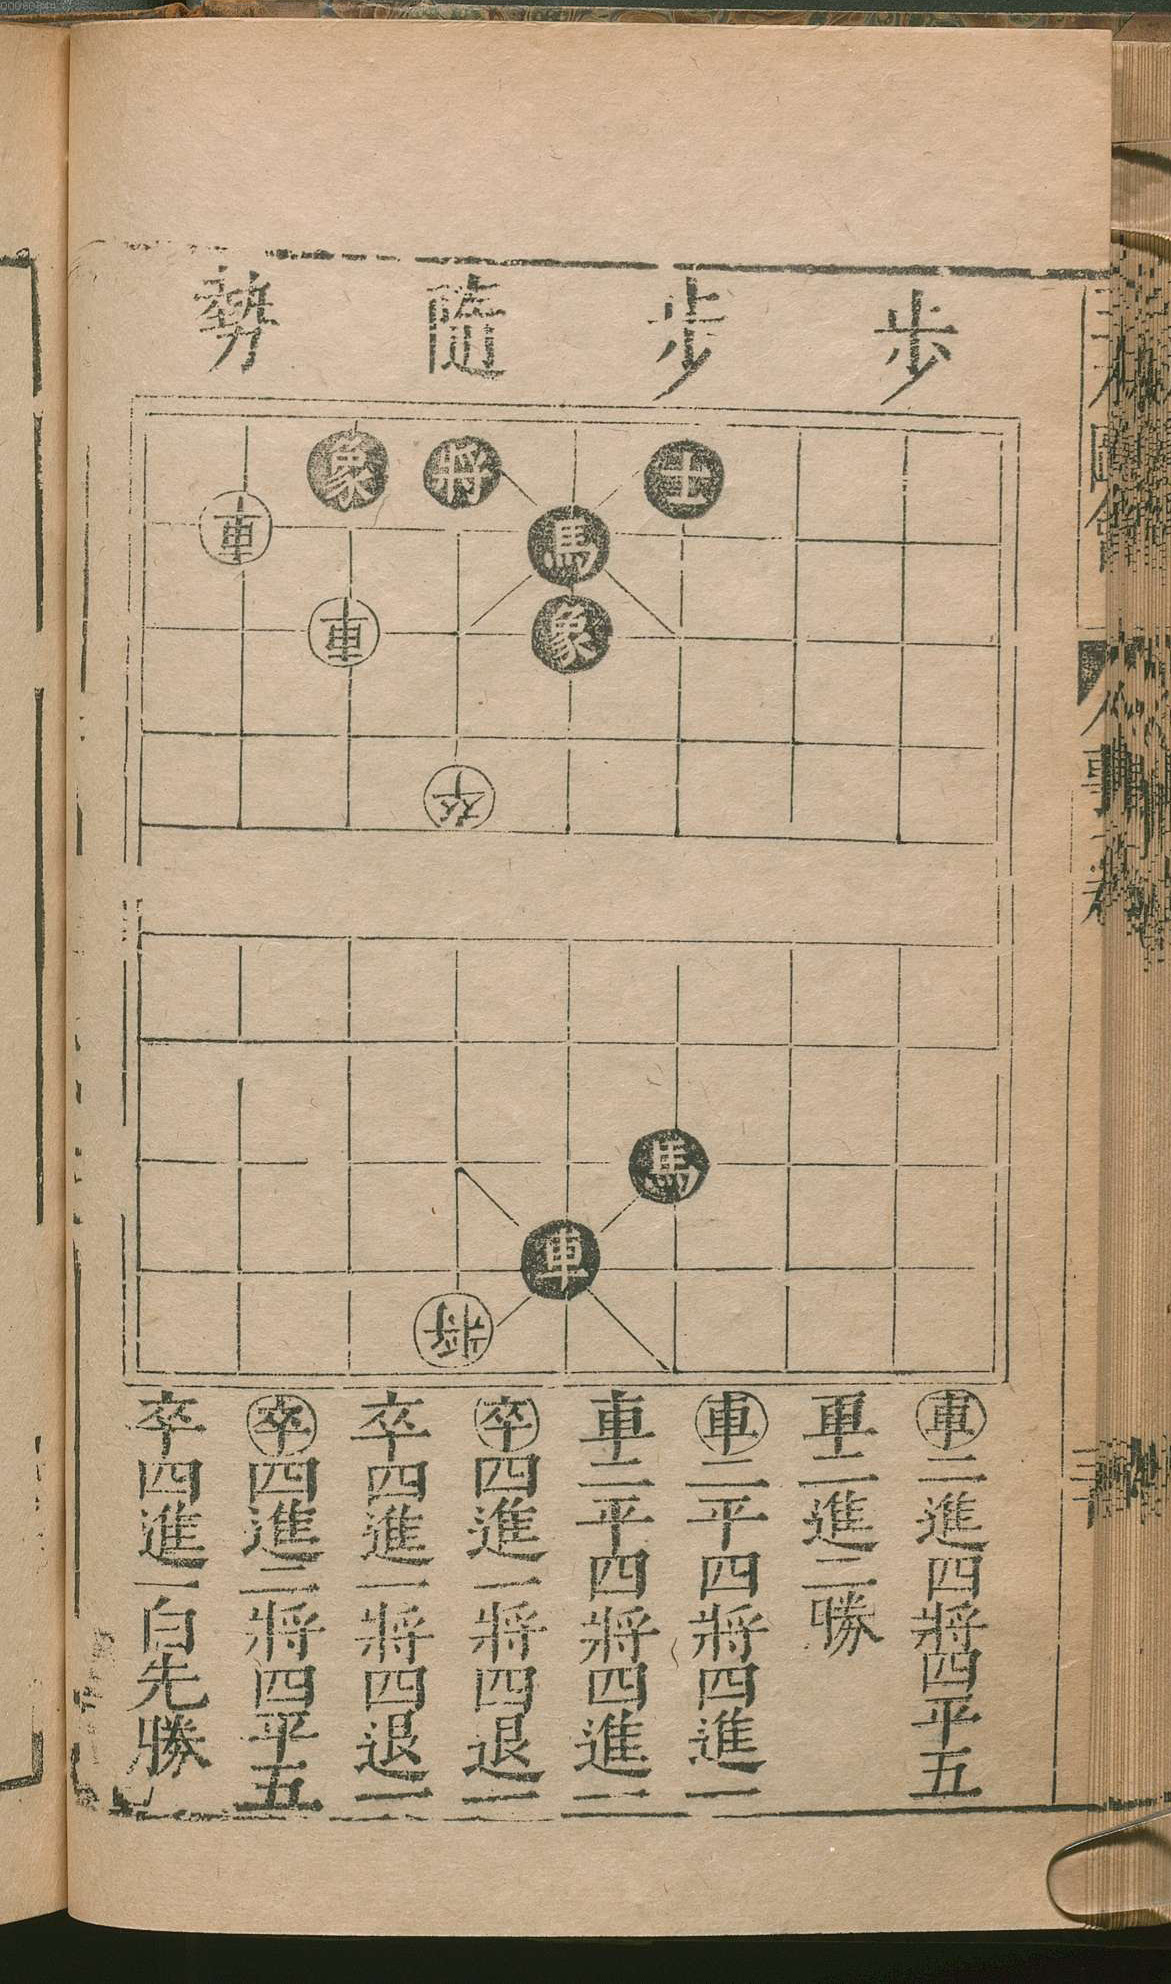 歩步隨勢
士將象
馬車
象車
卒
馬
車
將
車二進四將四平五
車二進二勝
車二平四將四進一
車二平四將四進一
卒四進一將四退一
卒四進一將四退一
卒四進二將四平五
卒四進一白先勝